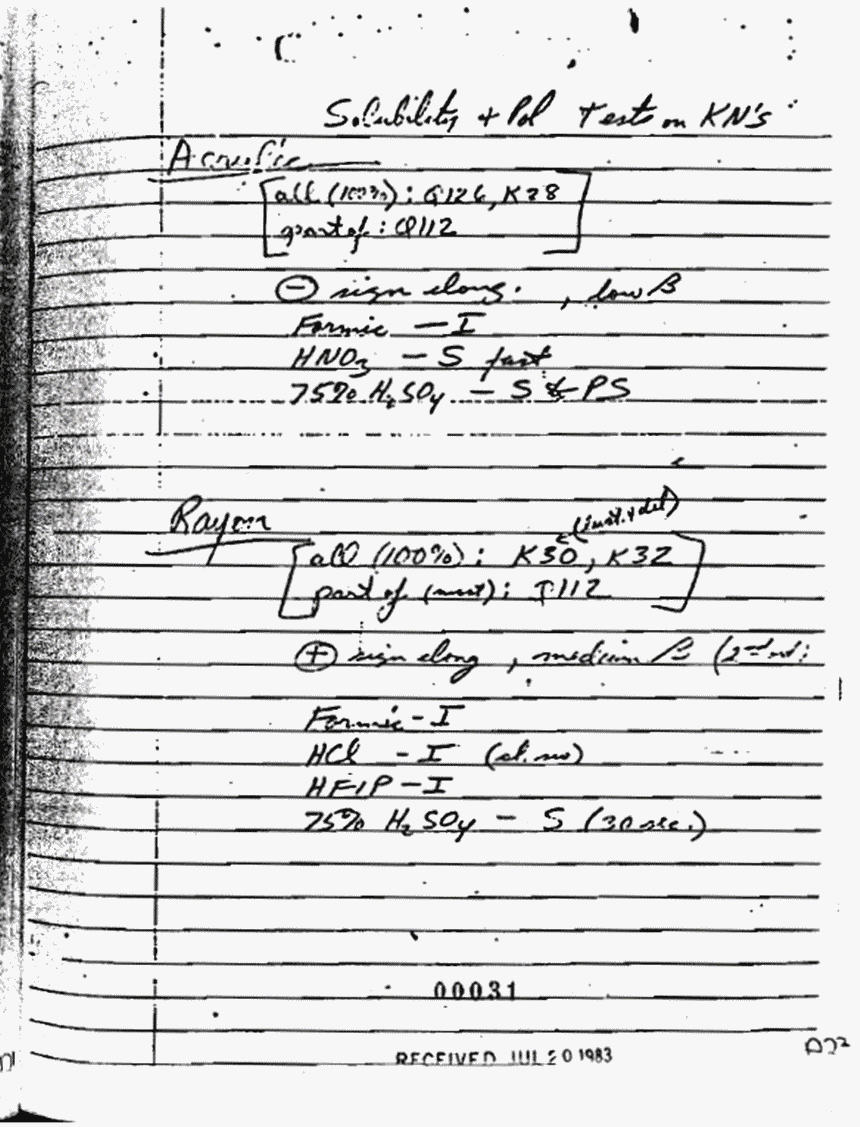 Solubility + Pol Tests on KN's
Acrylic
all (100%): Q126, K28
part of: Q112
⊖ sign elong. , low B
Formic — I
HNO3 — S fast
75% H2SO4 — S & PS
Rayon
all (100%): K30, K32
part of (most): 112
⊕ sign elong , medium B (2nd
Formic - I
HCl - I
HFIP - I
75% H2SO4 — S (30 sec.)
00031
RECEIVED JUL 20 1983